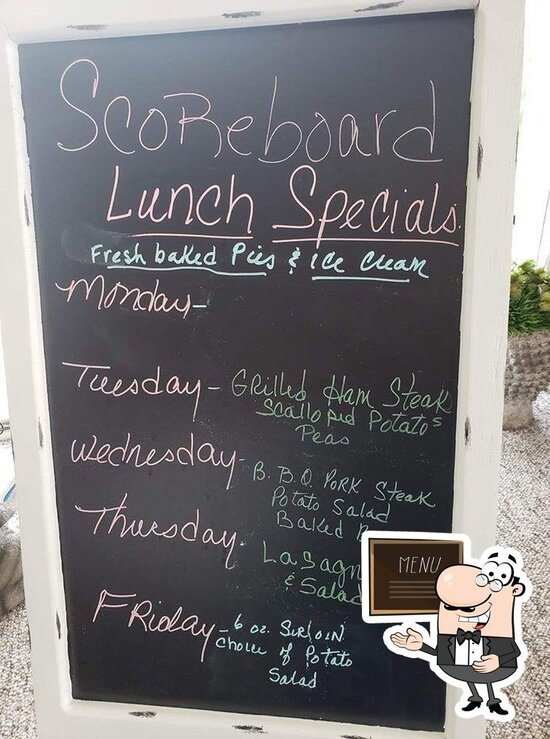 Scoreboard
Lunch Specials
Fresh baked Pies & Ice Cream
Monday-
Tuesday- Grilled Ham Steak
Scalloped Potatos
Peas
Wednesday- B.B.Q Pork Steak
Potato Salad
Baked
Thursday- Lasagn
& Salad
MENU
Friday- 6 oz. Sirloin
Choice of Potato
Salad